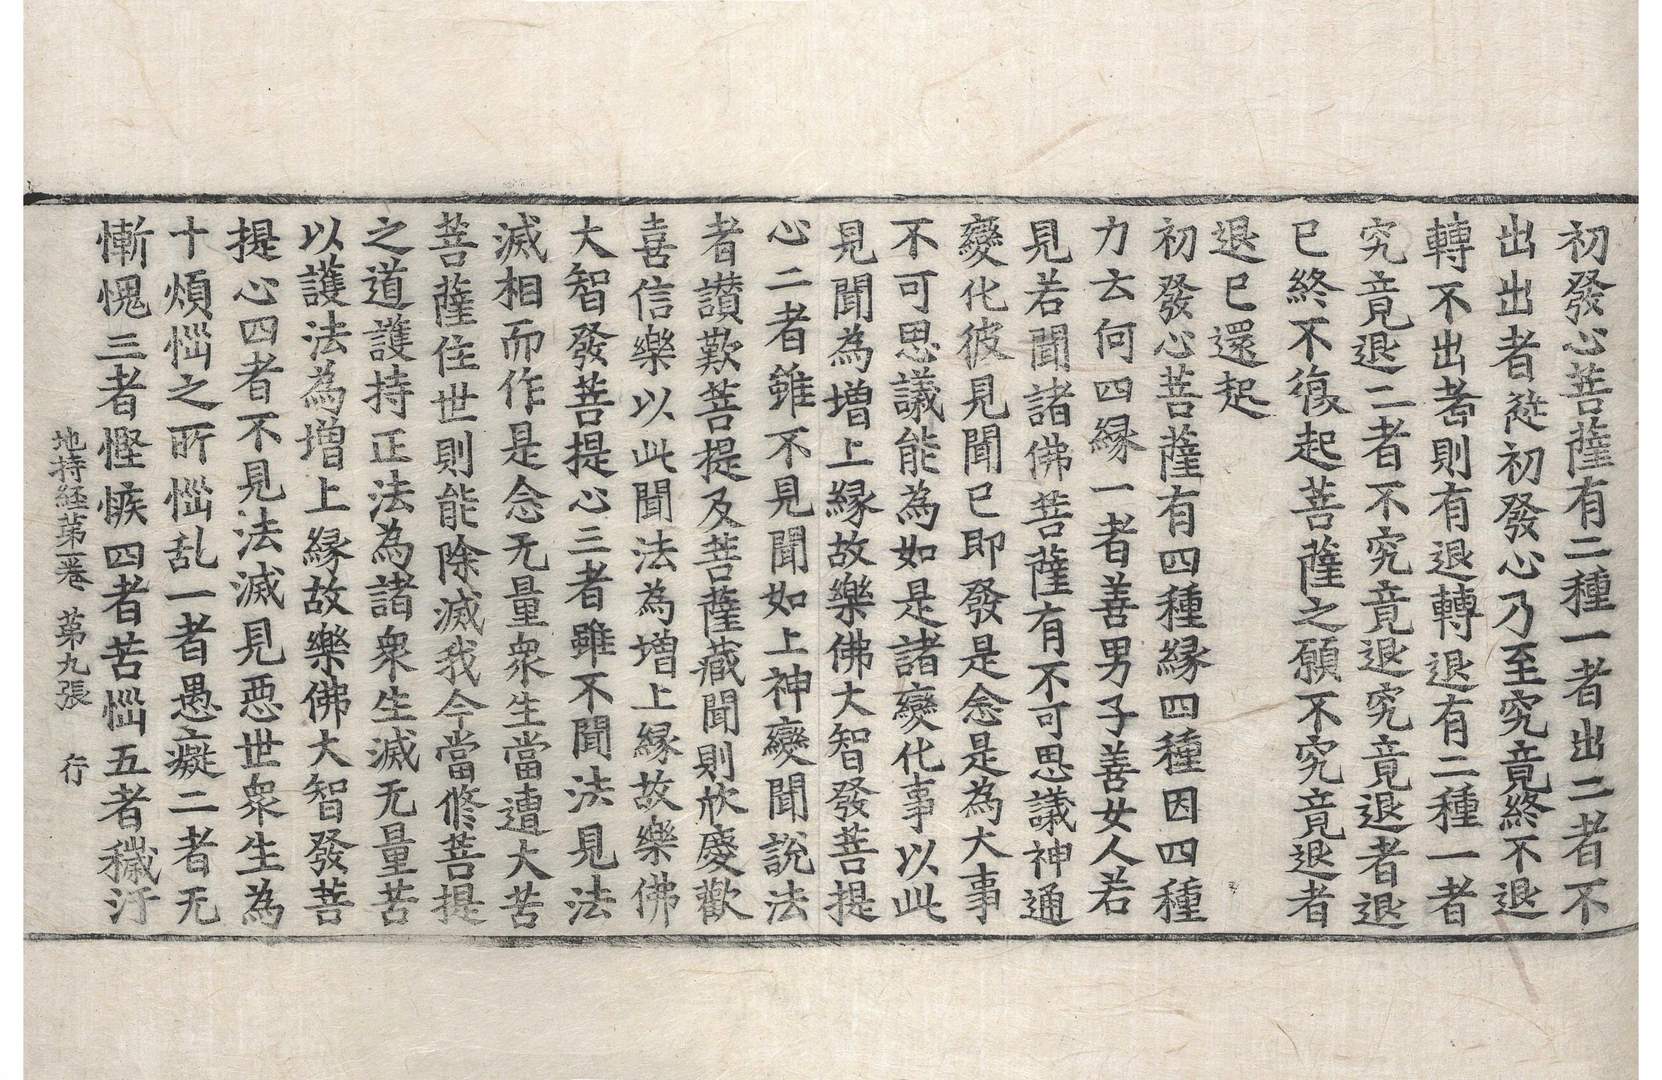 初發心菩薩有二種一者出二者不
出出者從初發心乃至究竟終不退
轉不出者則有退轉退有二種一者
究竟退二者不究竟退究竟退者退
已終不復起菩薩之願不究竟退者
退已還起
初發心菩薩有四種緣四種因四種
力云何四緣一者善男子善女人若
見若聞諸佛菩薩有不可思議神通
變化彼見聞已即發是念是為大事
不可思議能為如是諸變化事以此
見聞為增上緣故樂佛大智發菩提
心二者雖不見聞如上神變聞說法
者讃歎菩提及菩薩藏聞則欣慶歡
喜信樂以此聞法為增上緣故樂佛
大智發菩提心三者雖不聞法見法
滅相而作是念无量衆生當遭大苦
菩薩住世則能除滅我今當修菩提
之道護持正法為諸衆生滅无量苦
以護法為增上緣故樂佛大智發菩
提心四者不見法滅見惡世衆生為
十煩惱之所惱乱一者愚癡二者无
慚愧三者慳嫉四者苦惱五者穢汙
地持經第一卷 第九張 行